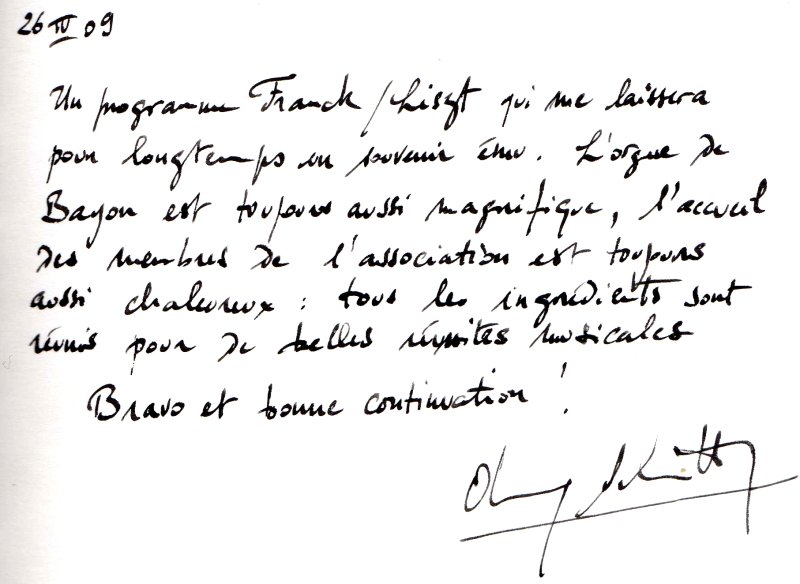 26 IV 09
Un programme Franck / Liszt qui me laissera
pour longtemps un souvenir ému. L'orgue de
Bayon est toujours aussi magnifique, l'accueil
des membres de l'association est toujours
aussi chaleureux : tous les ingrédients sont
réunis pour de belles réussites musicales
Bravo et bonne continuation !